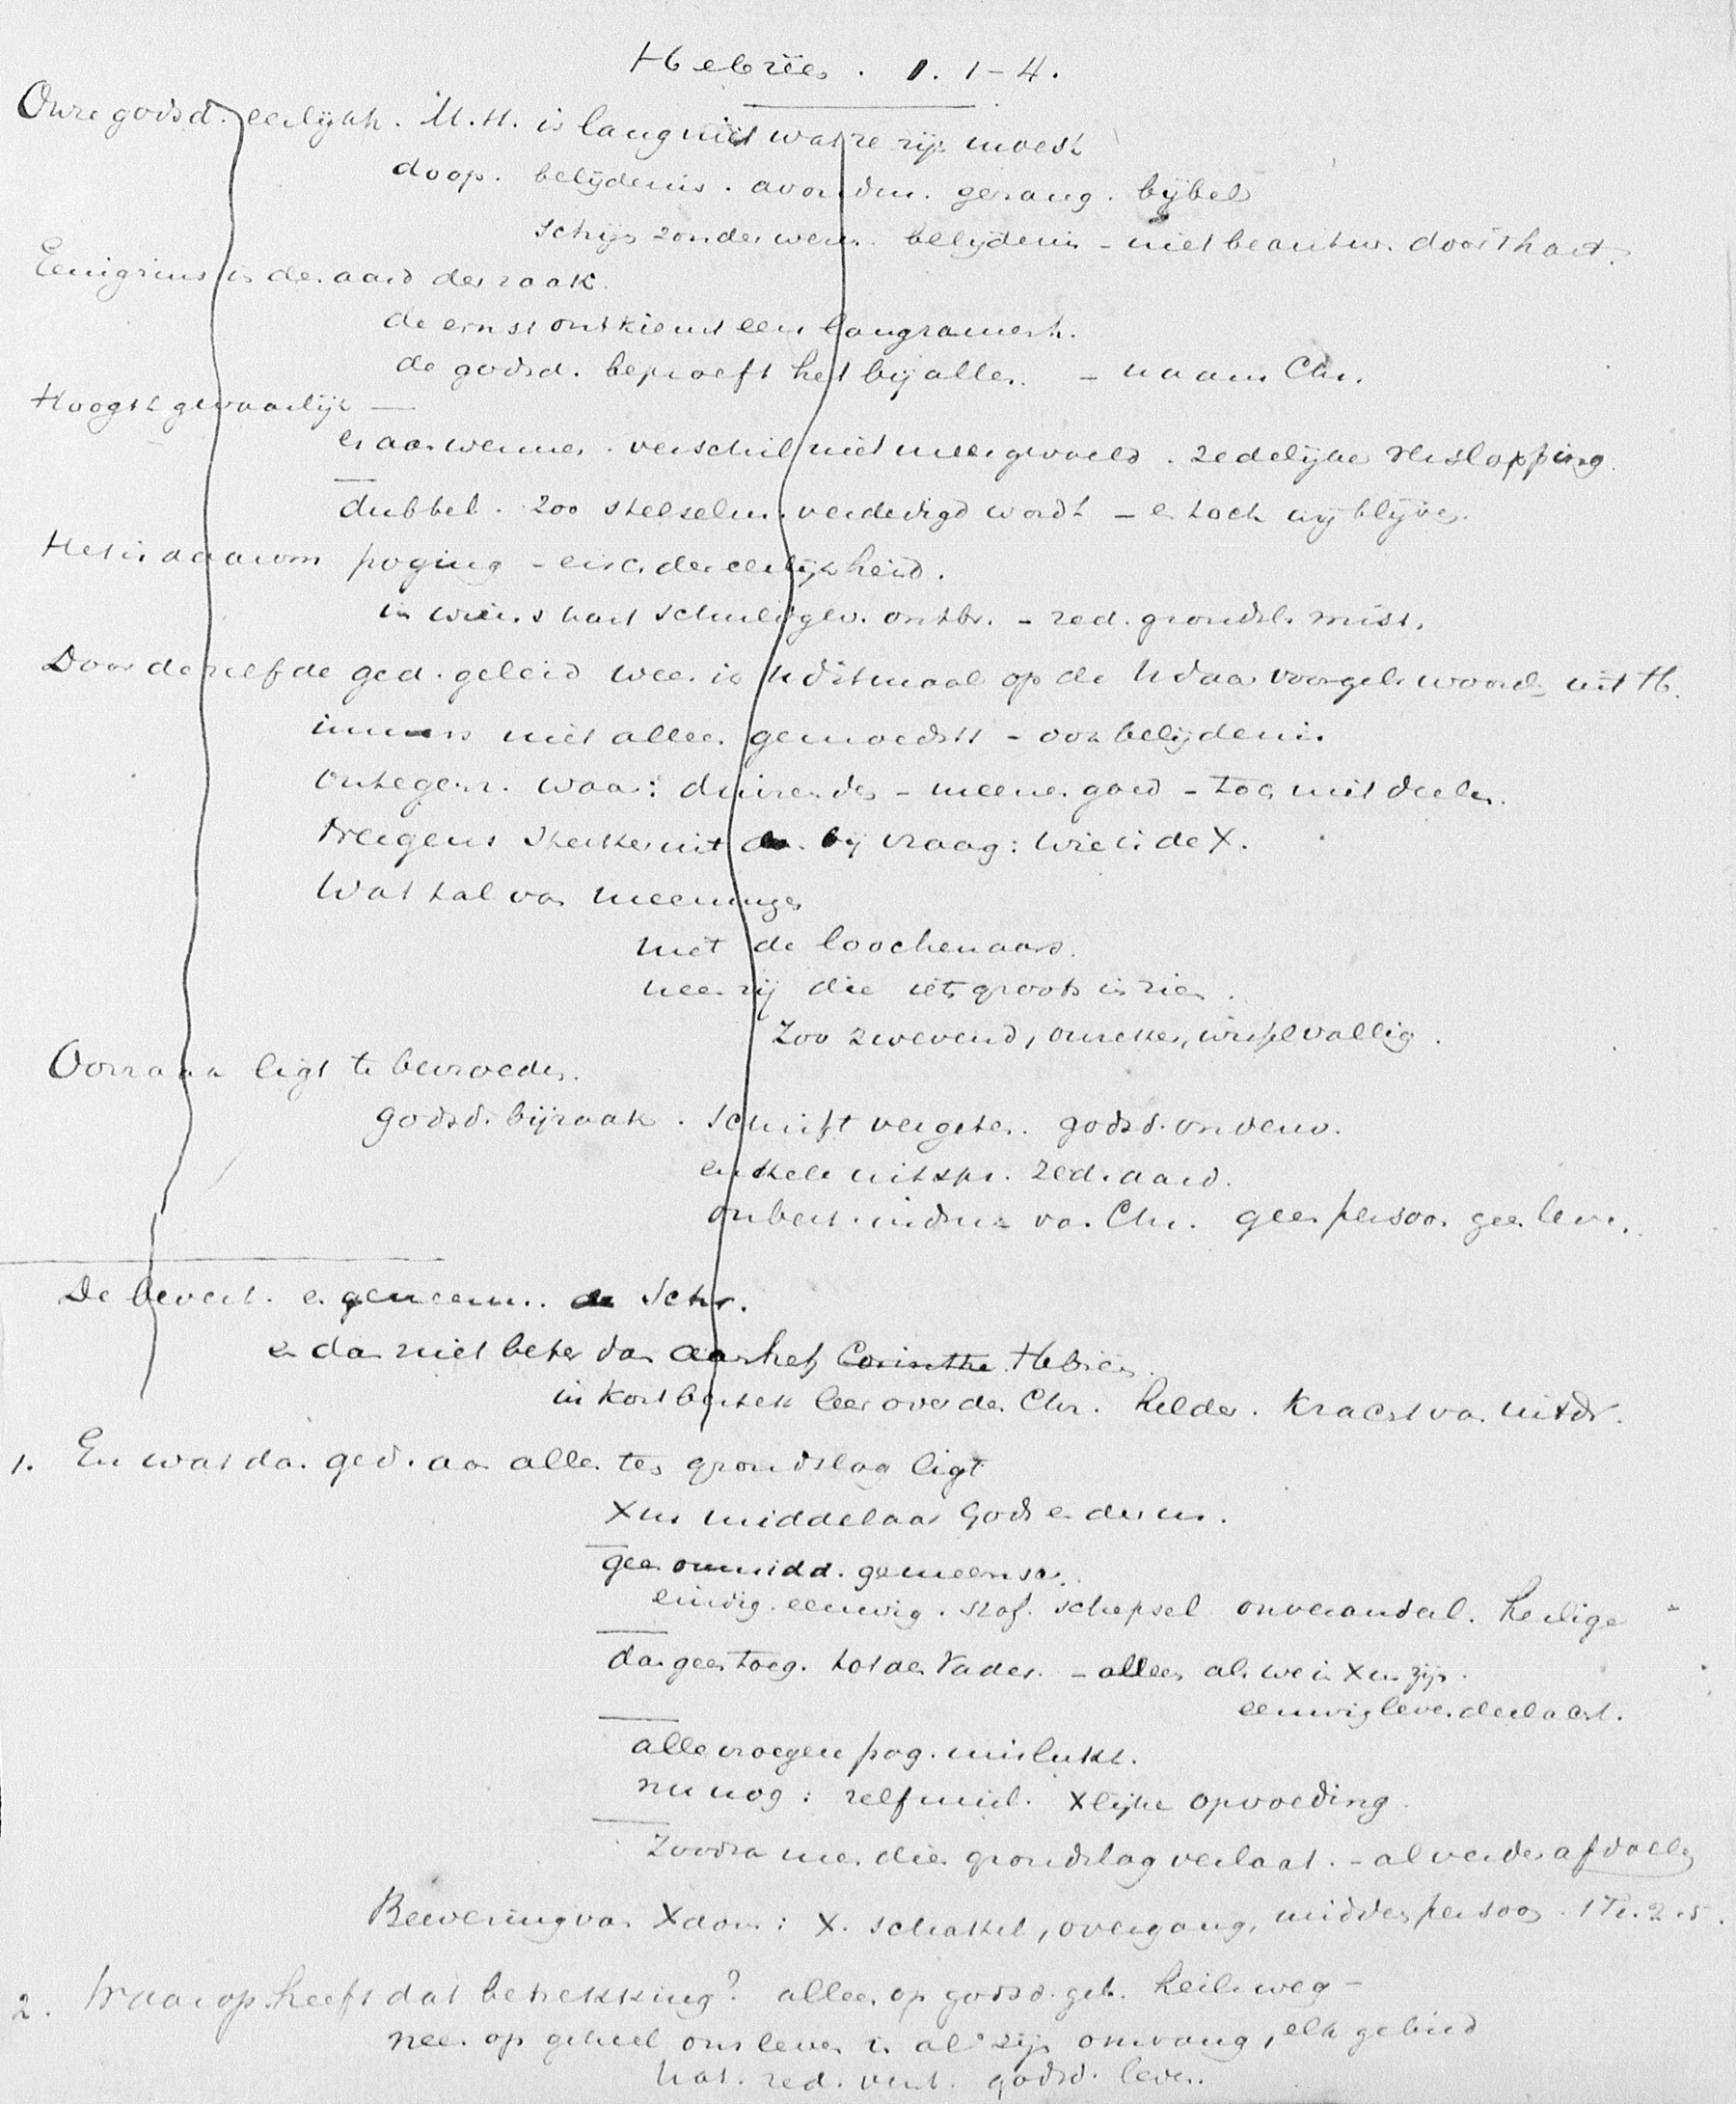 Hebrëes . 1. 1-4.
Onze godsd. eerlijkh. M.H. is lang niet wat ze zijn moest
doop. belijdenis. avondm. gezang. bijbel
schijn zonder wezen. belijdenis - niet beantw. door 't hart.
Eenigzins in de. aard der zaak.
de ernst ontkiemt eerst langzamerh.
de godsd. beproeft het bij allen. - naam Chr.
Hoogst gevaarlijk —
er aan wennen. verschil niet meer gevoeld. zedelijke verslapping.
dubbel. zoo stelselm. verdedigd wordt - en toch wij blijven.
Het is daarom poging - eisch der eerlijkheid.
in wiens hart schuldgev. ontbr. - zed. grondsl. mist.
Door dezelfde ged. geleid wees ik u ditmaal op de u daar voorgel. woorden uit H.
immers niet alleen gemoedst - ook belijdenis
ontegenz. waar: duizenden - meenen goed - toch niet deelen.
Nergens sterker uit bij vraag: Wie is de X.
Wat tal van meeningen
niet de loochenaars.
neen zij die iets groots in zien.
Zoo zwevend, onzeker, wisselvallig.
Oorzaak ligt te bevroeden.
godsd. bijzaak. Schrift vergeten. godsd. onderw.
enkele uitspr. zed. aard.
onbest. indruk van Chr. geen persoon geen leven.
De bevest. en geneesm. de Schr.
en dan niet beter dan aan het Corinthe Hebreën.
in kort bestek leer over den Chr. helder. Kracht van uitdr.
1. En wat dan. ged. aan allen ten grondslag ligt
Xus middelaar Gods en der m.
geen onmidd. gemeensch.
eindig. eeuwig. stof. schepsel onveranderl. heilige
dan geen toeg. tot den Vader. - alleen als we in Xus zijn.
eeuwig leven deelacht.
alle vroegere pog. mislukt.
nu nog: zelf mid. Xlijke opvoeding.
Zoodra men dien grondslag verlaat. - al verder afdaalt
Bewering van Xdom: X. schakel, overgang, middenpersoon. 1 Ti. 2.5.
2. Waarop heeft dat betrekking? alleen op godsd. geb. heilsweg -
neen op geheel ons leven in al zijn omvang, elk gebied
nat. zed. verst. godsd. leven.